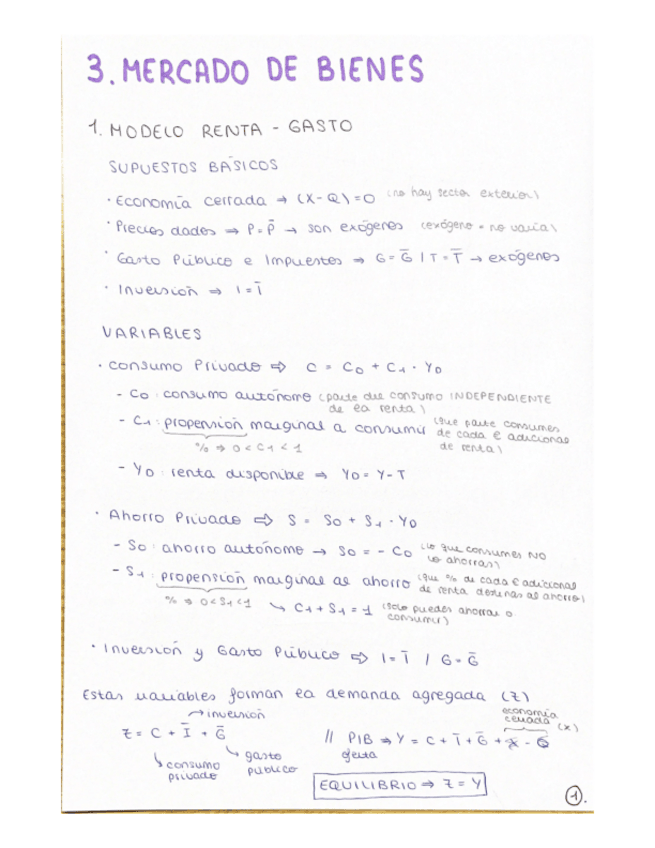 3. MERCADO DE BIENES
1. MODELO RENTA - GASTO
SUPUESTOS BÁSICOS
· Economía cerrada → (X-Q)=0 (no hay sector exterior)
· Precios dados ⇒ P=P̄ → son exógenos (exógeno = no varía)
· Gasto Público e Impuestos ⇒ G=Ḡ | T=T̄ → exógenos
· Inversión ⇒ I=Ī
VARIABLES
· Consumo Privado ⇒ C = C0 + C1 · YD
- C0: consumo autónomo (parte del consumo INDEPENDIENTE
de la renta)
- C1: propensión marginal a consumir (que parte consumes
de cada € adicional
de renta)
% ⇒ 0<C1<1
- YD: renta disponible ⇒ YD = Y-T
· Ahorro Privado ⇒ S = S0 + S1 · YD
- S0: ahorro autónomo → S0 = - C0 (lo que consumes NO
lo ahorras)
- S1: propensión marginal al ahorro (que % de cada € adicional
de renta destinas al ahorro)
% ⇒ 0<S1<1 ↳ C1+S1 = 1 (solo puedes ahorrar o
consumir)
· Inversión y Gasto Público ⇒ I=Ī / G=Ḡ
Estas variables forman la demanda agregada (Z)
→ inversión
economía
cerrada (X)
Z = C + Ī + Ḡ // PIB ⇒ Y = C + Ī + Ḡ + X - Q
↳ consumo
privado
↳ gasto
público
oferta
EQUILIBRIO ⇒ Z = Y
1.